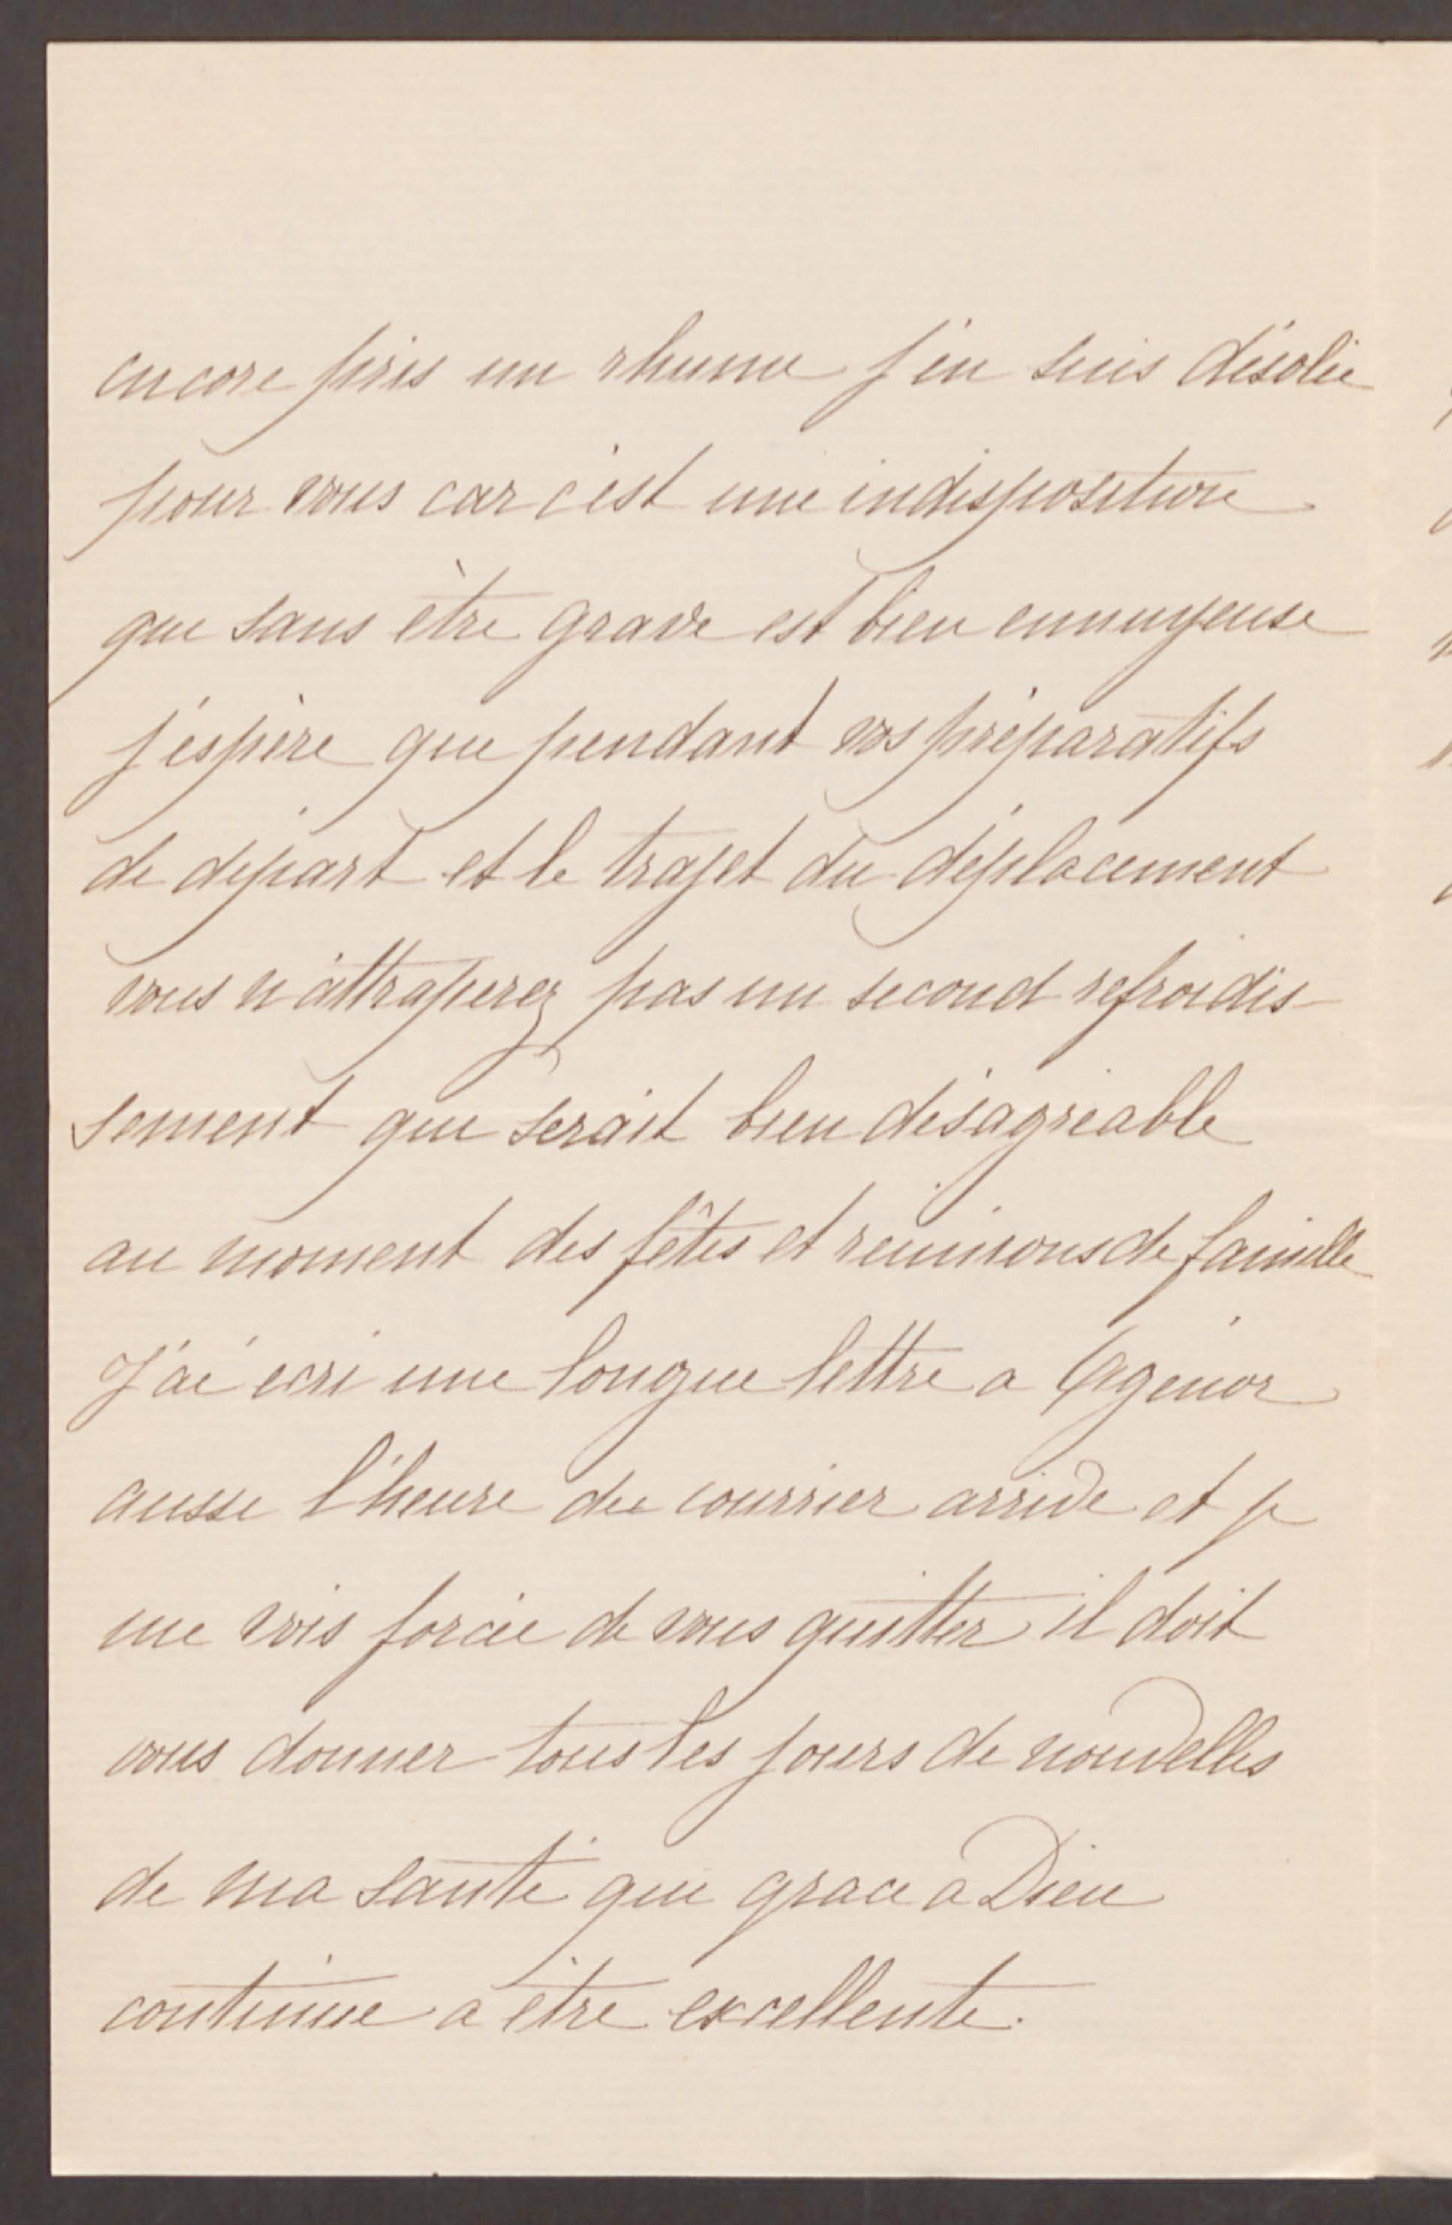 encore pris un rhume j'en suis désolée
pour vous car c'est une indisposition
qui sans être grave est bien ennuyeuse
j'espère que pendant vos préparatifs
de départ et le trajet du déplacement
vous n'attraperez pas un second refroidis-
sement qui serait bien désagréable
au moment des fêtes et reunions de famille
J'ai ecri une longue lettre a Agénor
aussi l'heure du courrier arrive et je
me vois forcée de vous quitter il doit
vous donner tous les jours de nouvelles
de ma santé qui grace a Dieu
continue a être excellente.